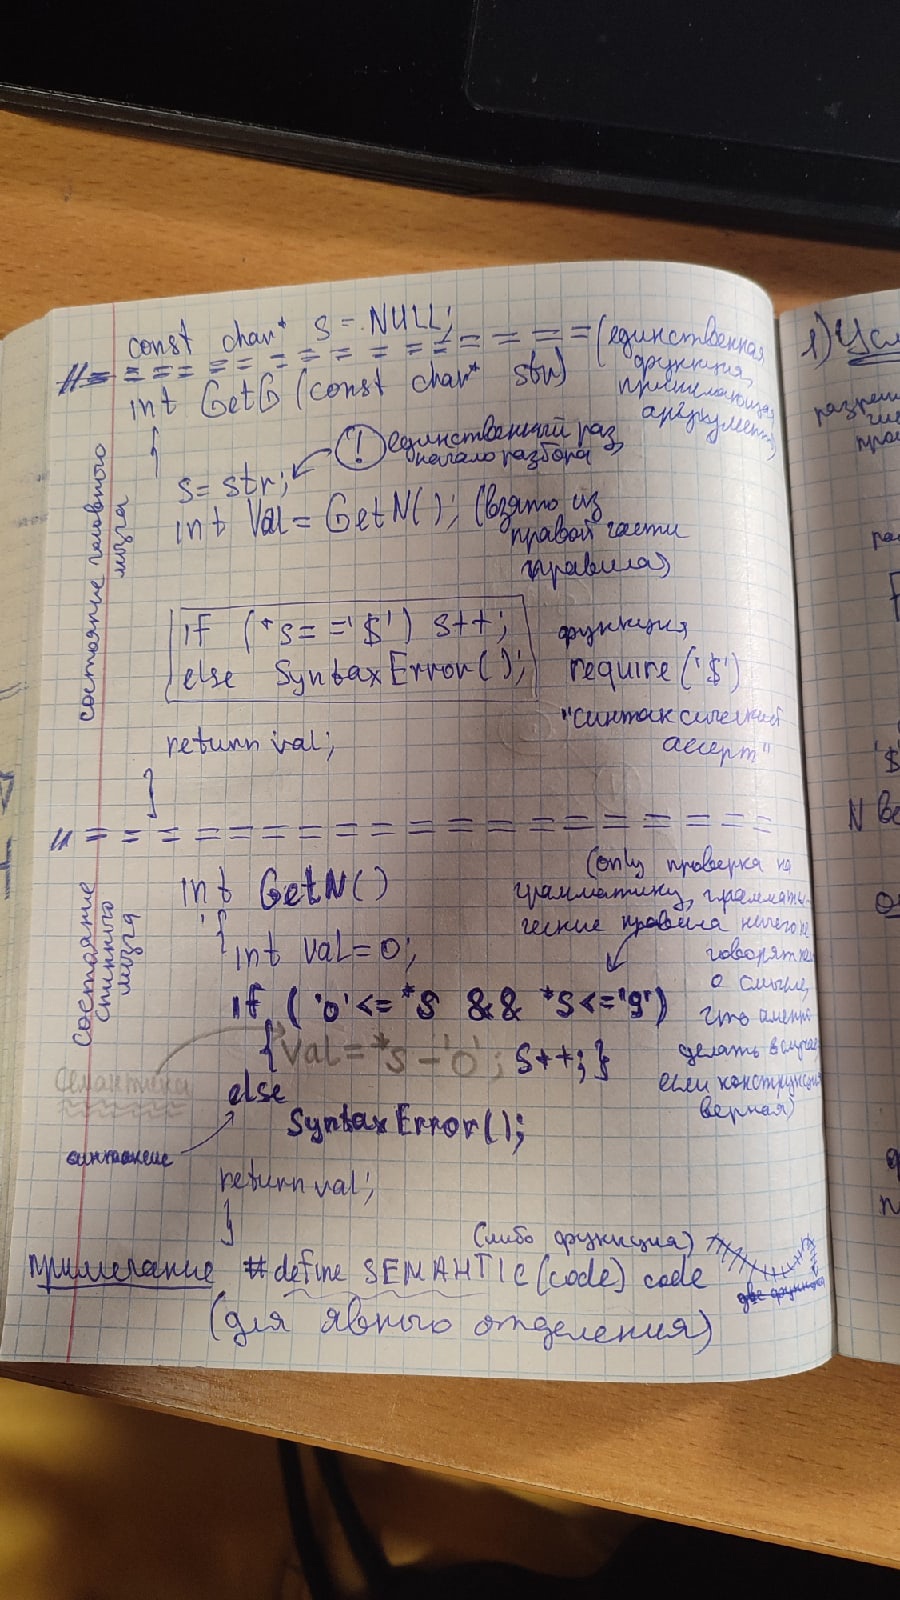 const char* s = NULL;
// = = = = = = = = = = = = = = = = =
(единственная
функция,
принимающая
аргументы)
int GetG (const char* str)
{
! единственный раз,
начало разбора
s = str;
int val = GetN(); (взято из
правой части
правила)
if (*s == '$') s++;
else SyntaxError();
функция
require('$')
"синтаксический
ассерт"
return val;
}
состояние головного
мозга
// = = = = = = = = = = = = = = = = = = = =
int GetN()
{
(only проверка на
грамматику, граммати-
ческие правила ничего не
говорят
о смысле,
что именно
делать в случае
если конструкция
верная)
int val = 0;
if ( '0' <= *s && *s <= '9')
{ val = *s - '0'; s++; }
else
SyntaxError();
семантика
синтаксис
return val;
}
состояние
спинного
мозга
(либо функция)
примечание #define SEMANTIC(code) code
(для явного отделения)
1) Усл
N